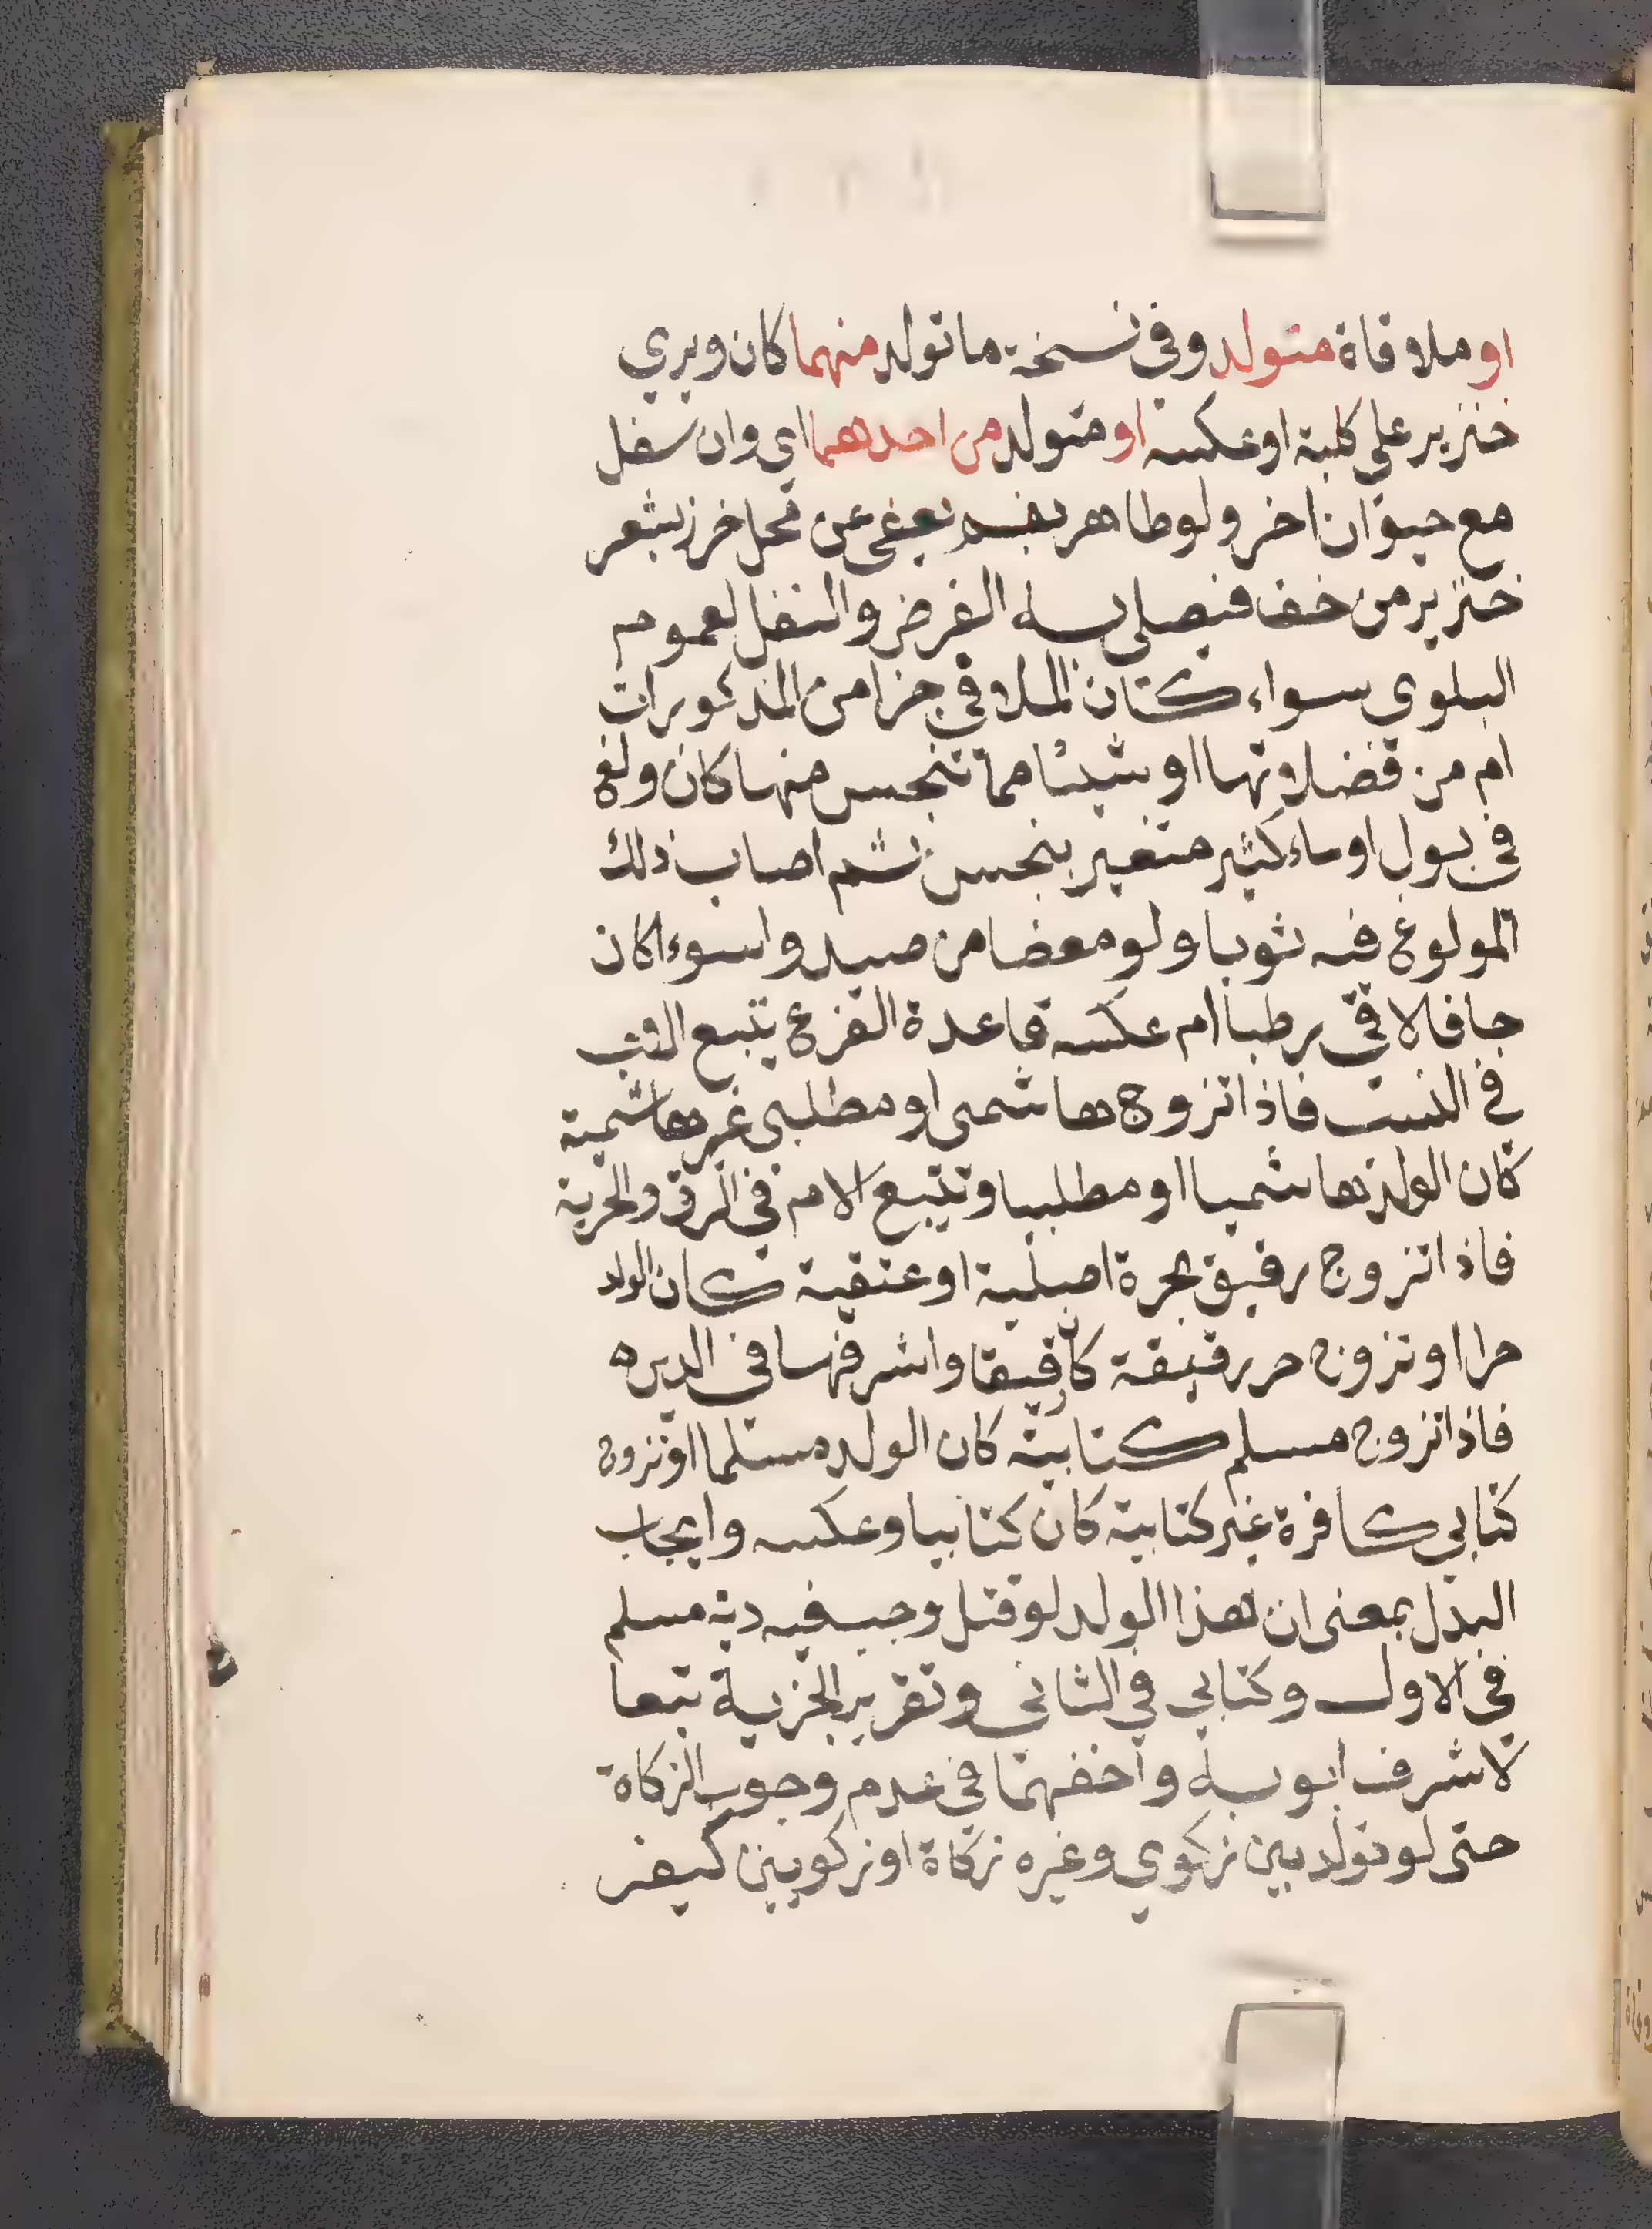 او ملاقاة متولد وفي نسخة ما تولد منهما كان ويري
خنزير علي كلبة او عكسه او متولد من احدهما اي وان سفل
مع حيوان اخر ولو طاهر يعفى عن محل خرز بشعر
خنزير من خف فيصلي به الفرض والنفل لعموم
البلوي سواء كان الملاقي جزا من المذكورات
ام من فضلاتها او شيئا مما تنجس منها كان ولغ
في بول او ماء كثير متغير بنجس ثم اصاب ذلك
المولوغ فيه ثوبا ولو معضا من صيد واسواكان
جافا لاقي رطبا ام عكسه قاعدة الفرع يتبع الاب
في النسب فاذا تزوج هاشمي او مطلبي غير هاشمية
كان الولد هاشميا او مطلبيا وتتبع الام في الرق والحرية
فاذا تزوج رقيق بحرة اصلية او عتقية كان الولد
حرا او تزوج حر رقيقة كان رقيقا واشرفهما في الدين
فاذا تزوج مسلم كتابية كان الولد مسلما او تزوج
كتابي كافرة غير كتابية كان كتابيا وعكسه وايجاب
البدل بمعنى ان هذا الولد لو قتل وجب فيه دية مسلم
في الاول وكتابي في الثاني وتقرير الجزية تبعا
لاشرف ابويه واخفهما في عدم وجوب الزكاة
حتى لو تولد بين زكوي وغيره زكاة او زكويين كبقر